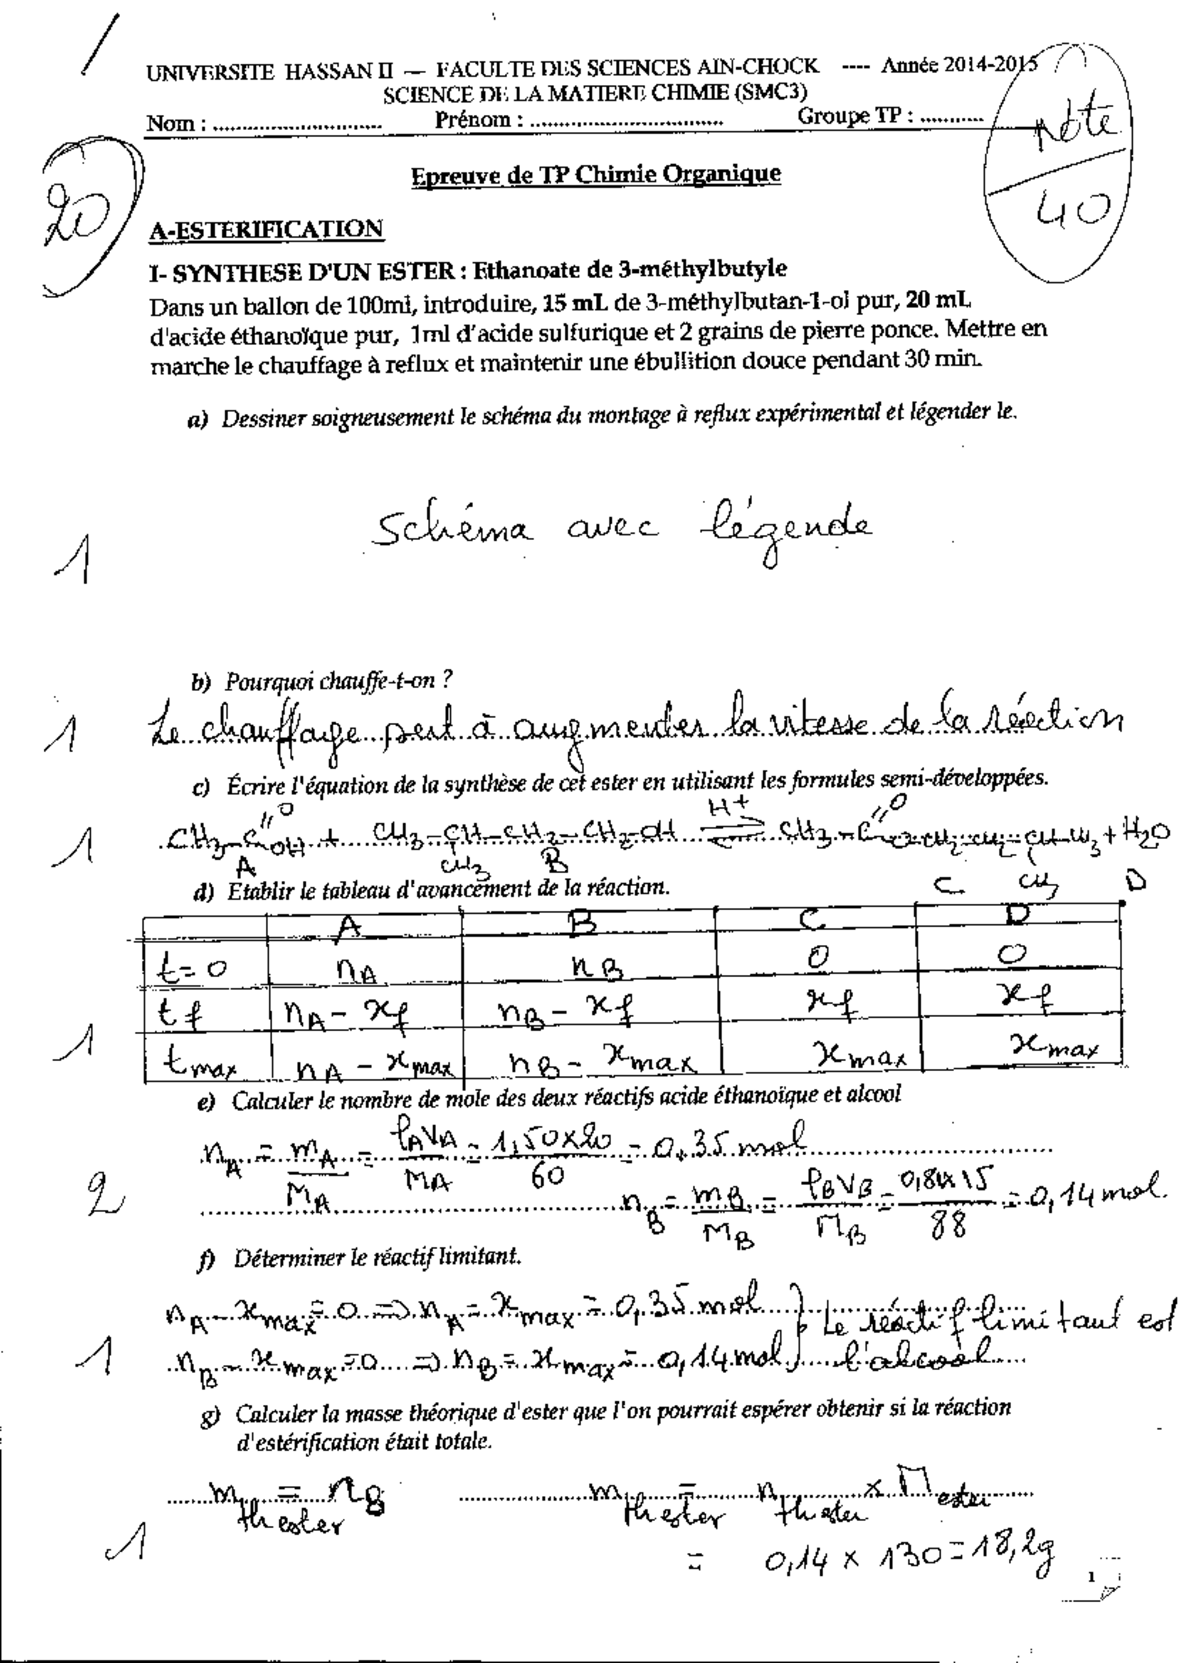 UNIVERSITE HASSAN II — FACULTE DES SCIENCES AIN-CHOCK ---- Année 2014-2015
SCIENCE DE LA MATIERE CHIMIE (SMC3)
Nom : ............................ Prénom : ................................ Groupe TP : ...........
note
40
20
Epreuve de TP Chimie Organique
A-ESTERIFICATION
I- SYNTHESE D'UN ESTER : Ethanoate de 3-méthylbutyle
Dans un ballon de 100ml, introduire, 15 mL de 3-méthylbutan-1-ol pur, 20 mL
d'acide éthanoïque pur, 1ml d'acide sulfurique et 2 grains de pierre ponce. Mettre en
marche le chauffage à reflux et maintenir une ébullition douce pendant 30 min.
a) Dessiner soigneusement le schéma du montage à reflux expérimental et légender le.
Schéma avec légende
1
b) Pourquoi chauffe-t-on ?
1 Le chauffage sert à augmenter la vitesse de la réaction
c) Écrire l'équation de la synthèse de cet ester en utilisant les formules semi-développées.
1 CH3-C(=O)OH + CH3-CH(CH3)-CH2-CH2-OH ⇌ (H+) CH3-C(=O)O-CH2-CH2-CH(CH3)-CH3 + H2O
A B C D
d) Etablir le tableau d'avancement de la réaction.
A B C D
t=0 nA nB 0 0
tf nA - xf nB - xf xf xf
1
tmax nA - xmax nB - xmax xmax xmax
e) Calculer le nombre de mole des deux réactifs acide éthanoïque et alcool
nA = mA/MA = ρAVA/MA = 1,50x20/60 = 0,35 mol
2 nB = mB/MB = ρBVB/MB = 0,81x15/88 = 0,14 mol.
f) Déterminer le réactif limitant.
nA - xmax = 0 => nA = xmax = 0,35 mol } Le réactif limitant est
1 nB - xmax = 0 => nB = xmax = 0,14 mol } l'alcool
g) Calculer la masse théorique d'ester que l'on pourrait espérer obtenir si la réaction
d'estérification était totale.
m th ester = nB m th ester = n th ester x M ester
1 = 0,14 x 130 = 18,2g
1